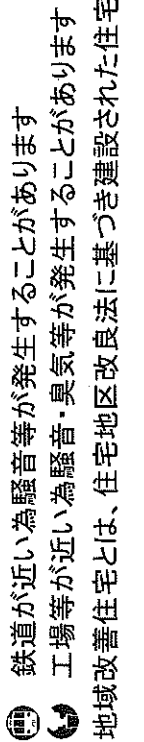 鉄道が近い為騒音等が発生することがあります
工場等が近い為騒音・臭気等が発生することがあります
地域改善住宅とは、住宅地区改良法に基づき建設された住宅